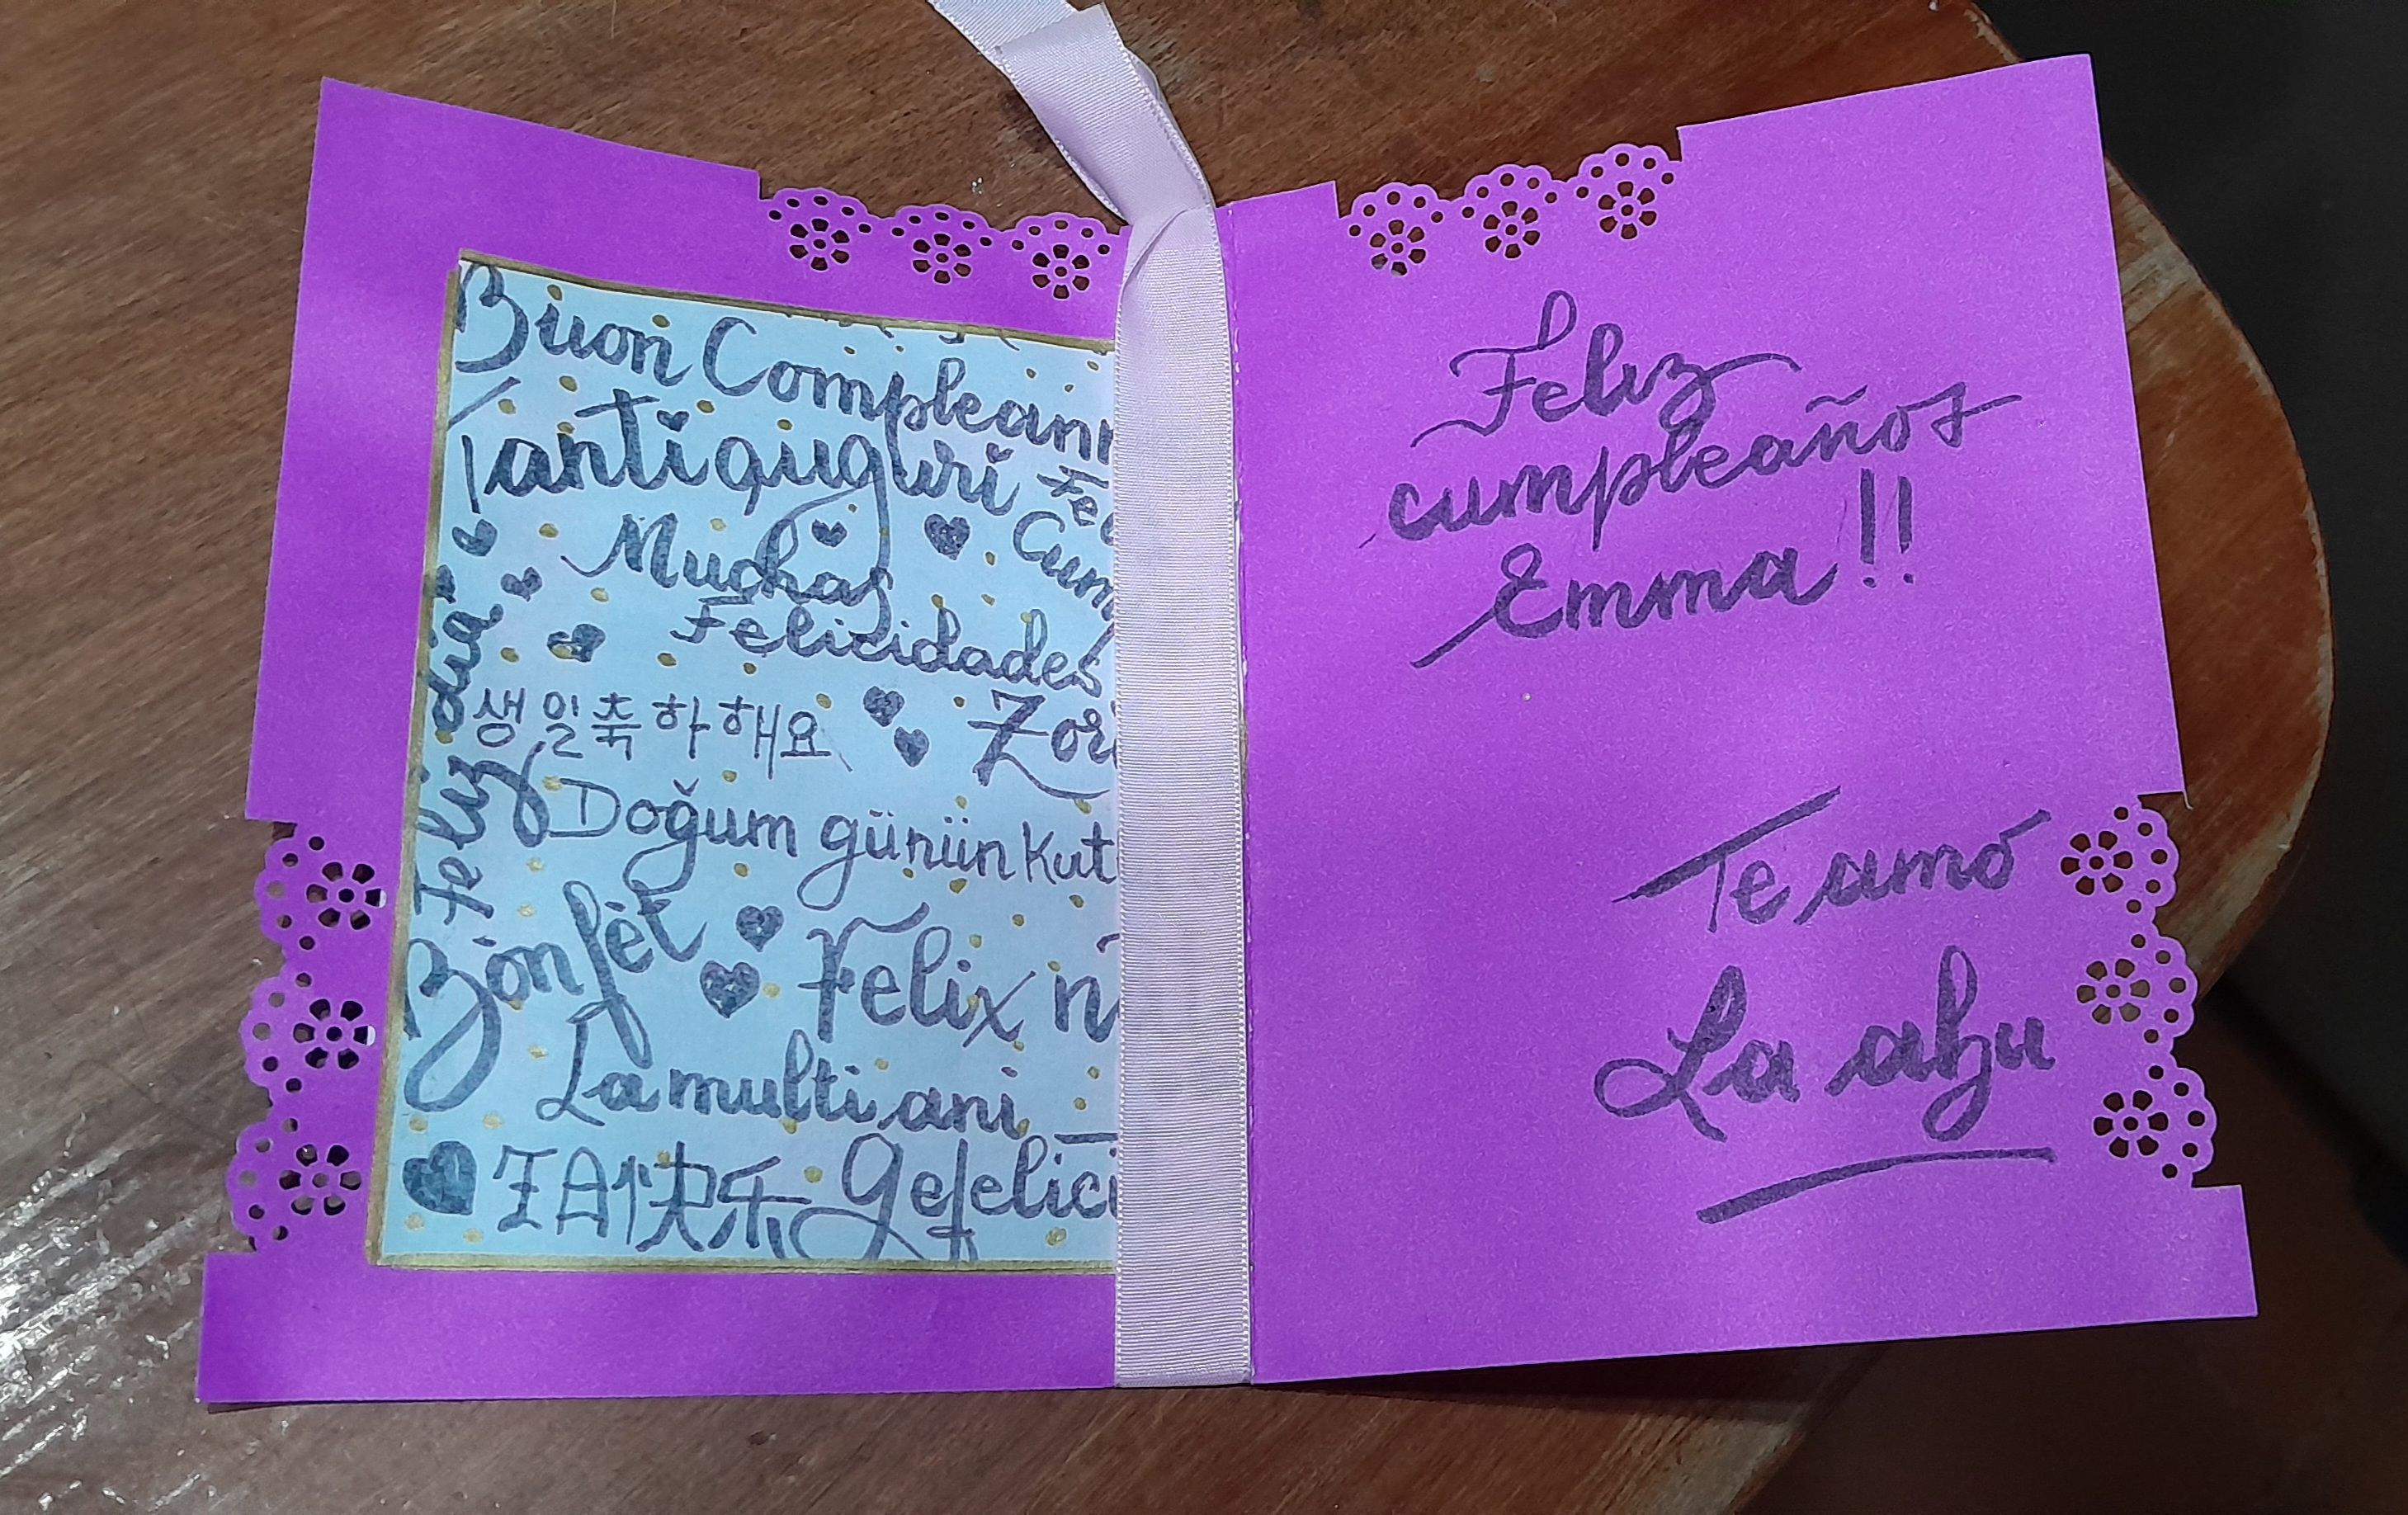 Buon Compleann
Tanti auguri Fe
Muchas Cum
Felicidades
Feliz día
생일축하해요 Zor
Doğum günün Kut
Bòn fèt Felix n
La multi ani
日快乐 gefelici
Feliz
cumpleaños
Emma!!
Te amo
La abu